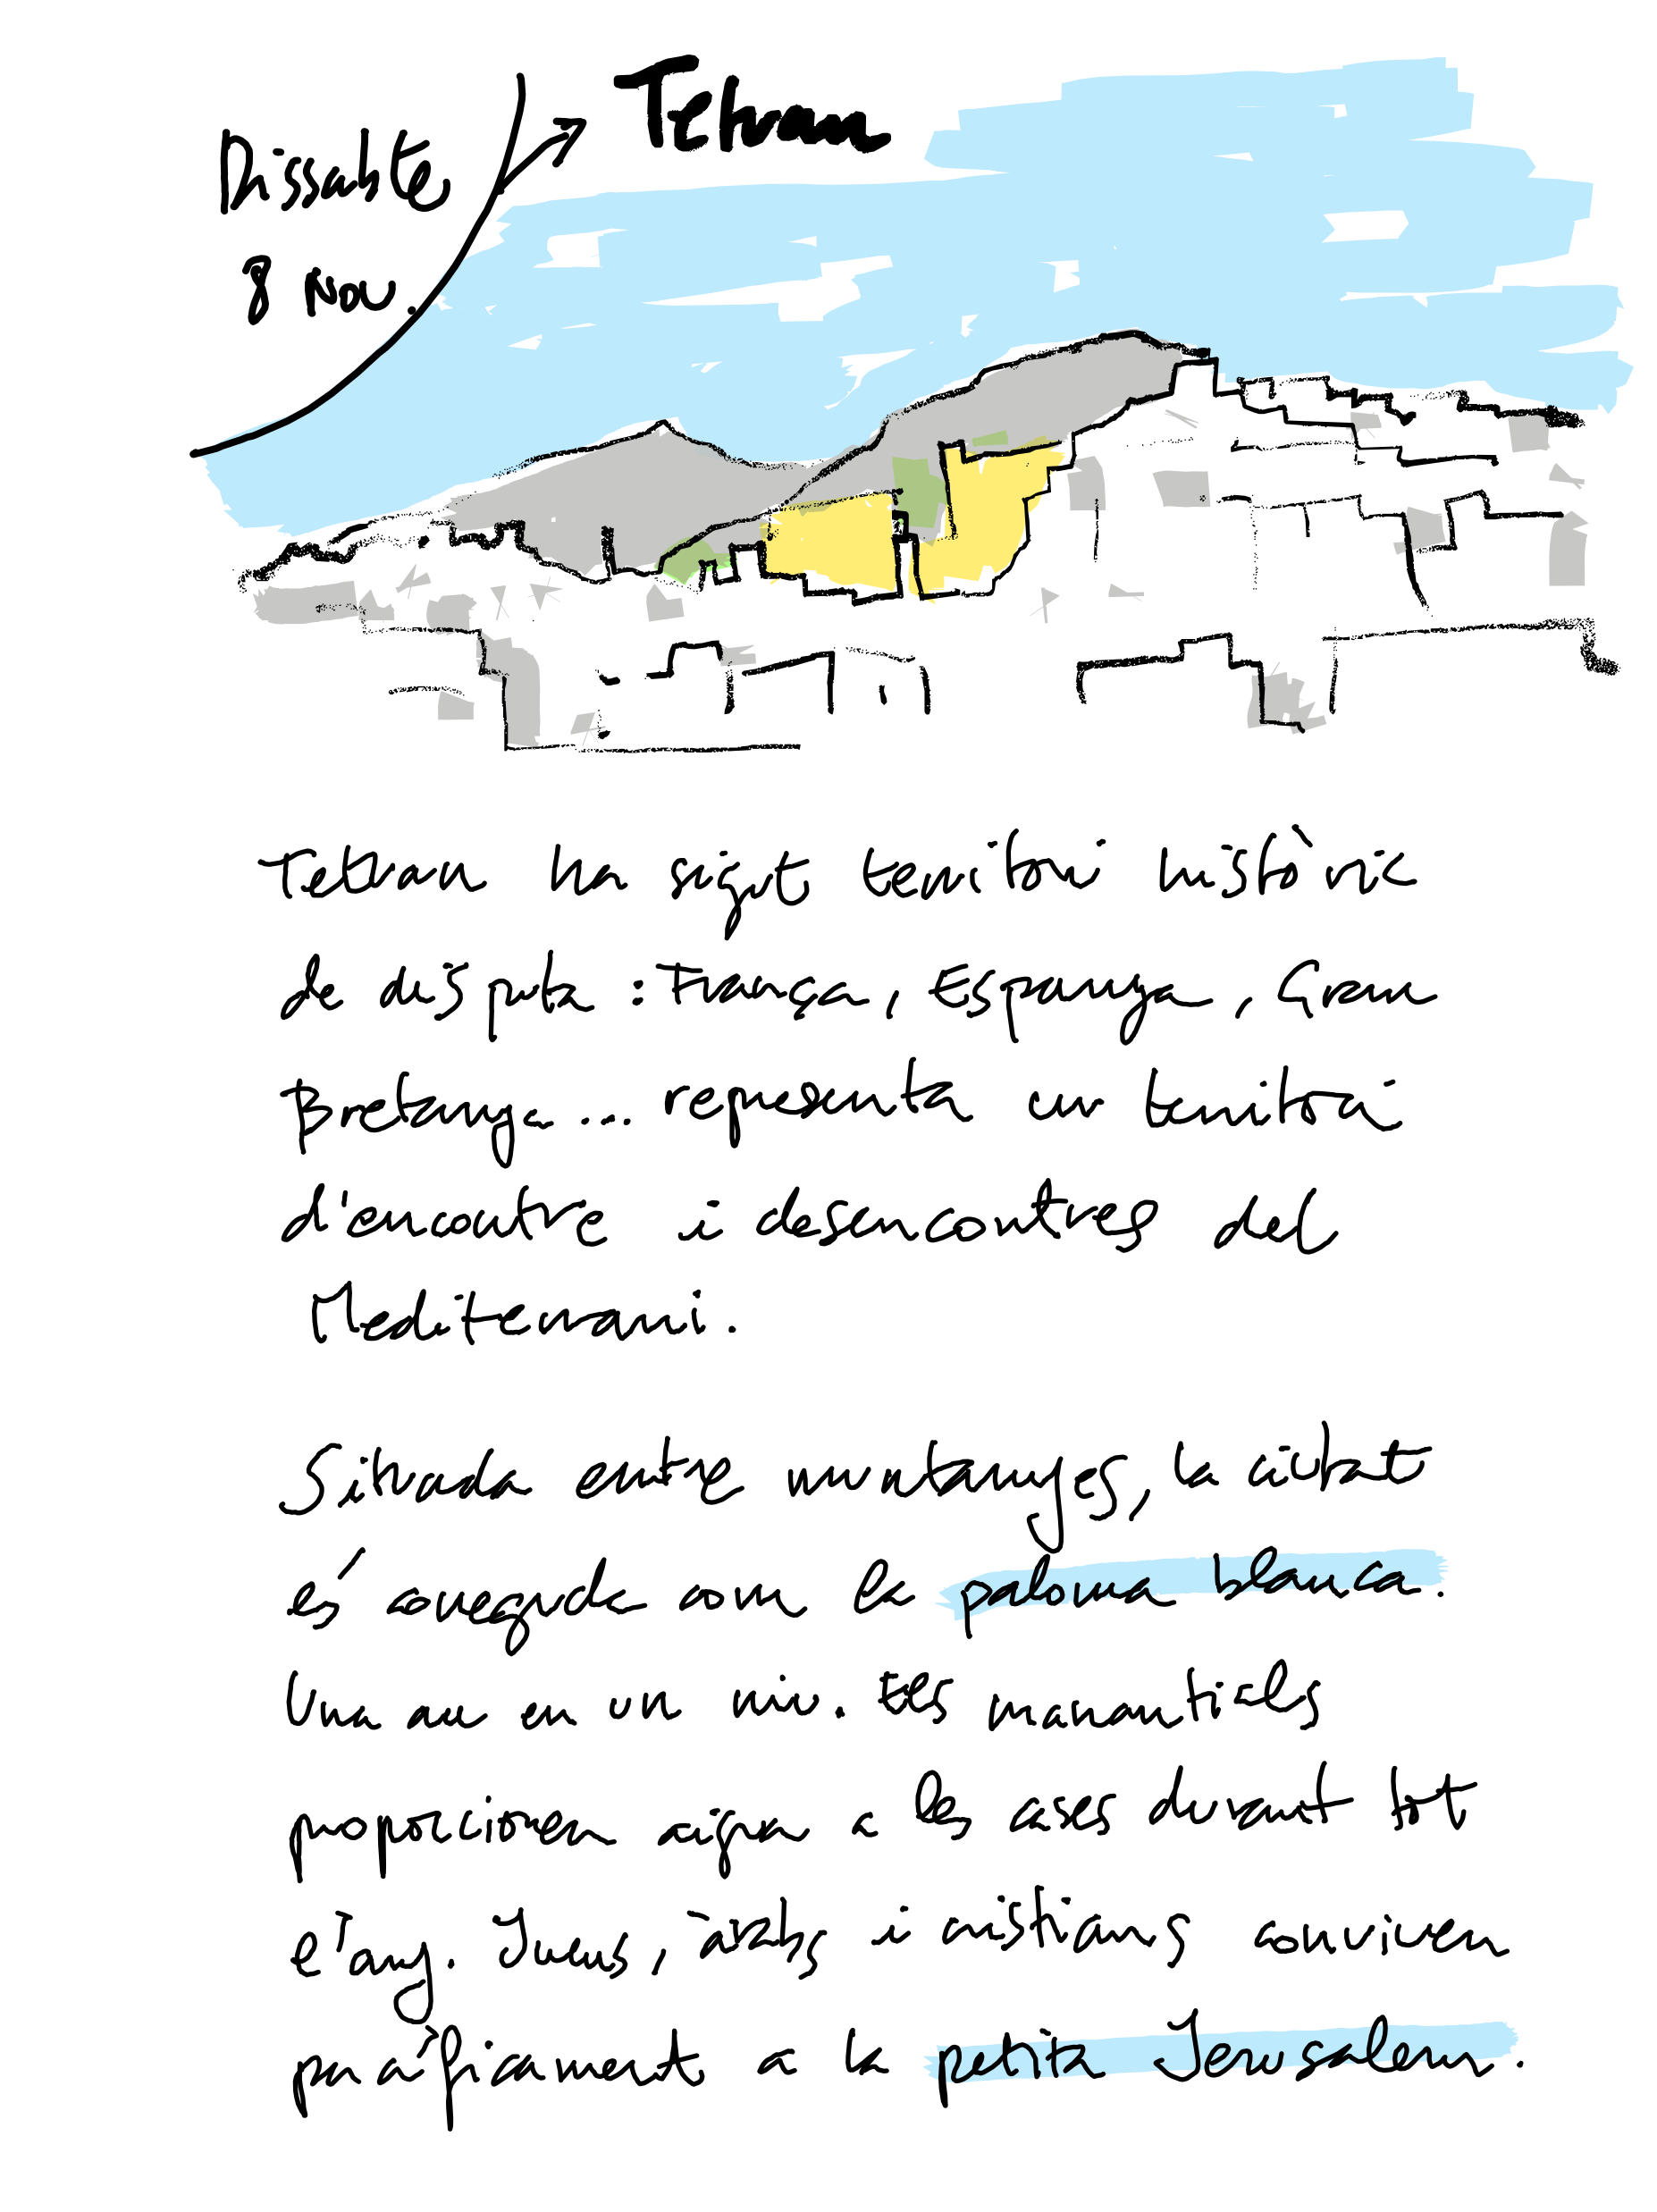 Dissabte
8 Nov.
Tetuan
Tetuan ha sigut territori històric
de disputa: França, Espanya, Gran
Bretanya... representa un territori
d'encontre i desencontres del
Mediterrani.
Situada entre muntanyes, la ciutat
és coneguda com la paloma blanca.
Una au en un niu. Els manantials
proporcionen aigua a les cases durant tot
l'any. Jueus, àrabs i cristians conviuen
pacíficament a la petita Jerusalem.